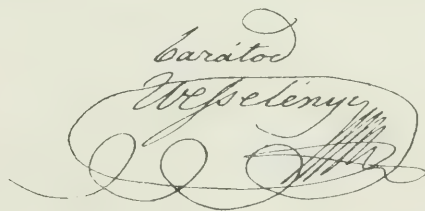 barátod
Wesselényi